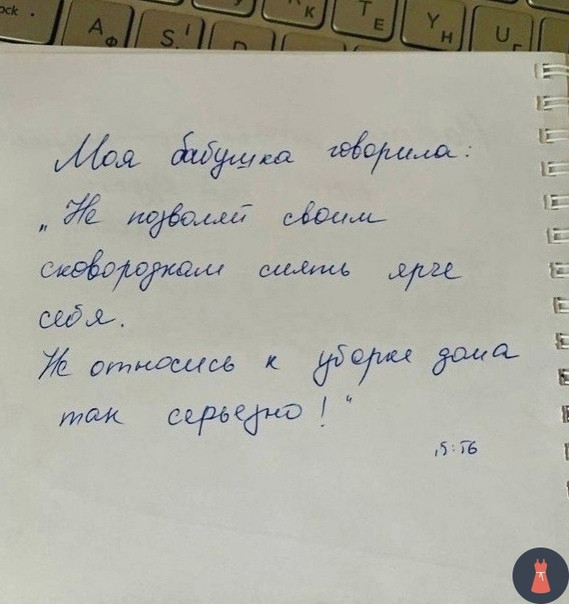 ock .
А Ф
S I
D
K
T Е
Y Н
U Г
Моя бабушка говорила:
„Не позволяй своим
сковородкам сиять ярче
себя.
Не относись к уборке дома
так серьезно!"